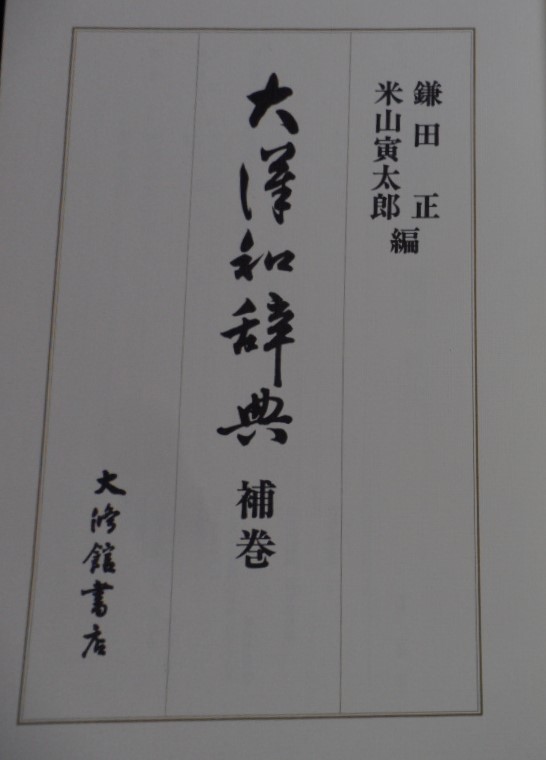 鎌田 正
米山寅太郎
編
大漢和辞典 補巻
大修館書店